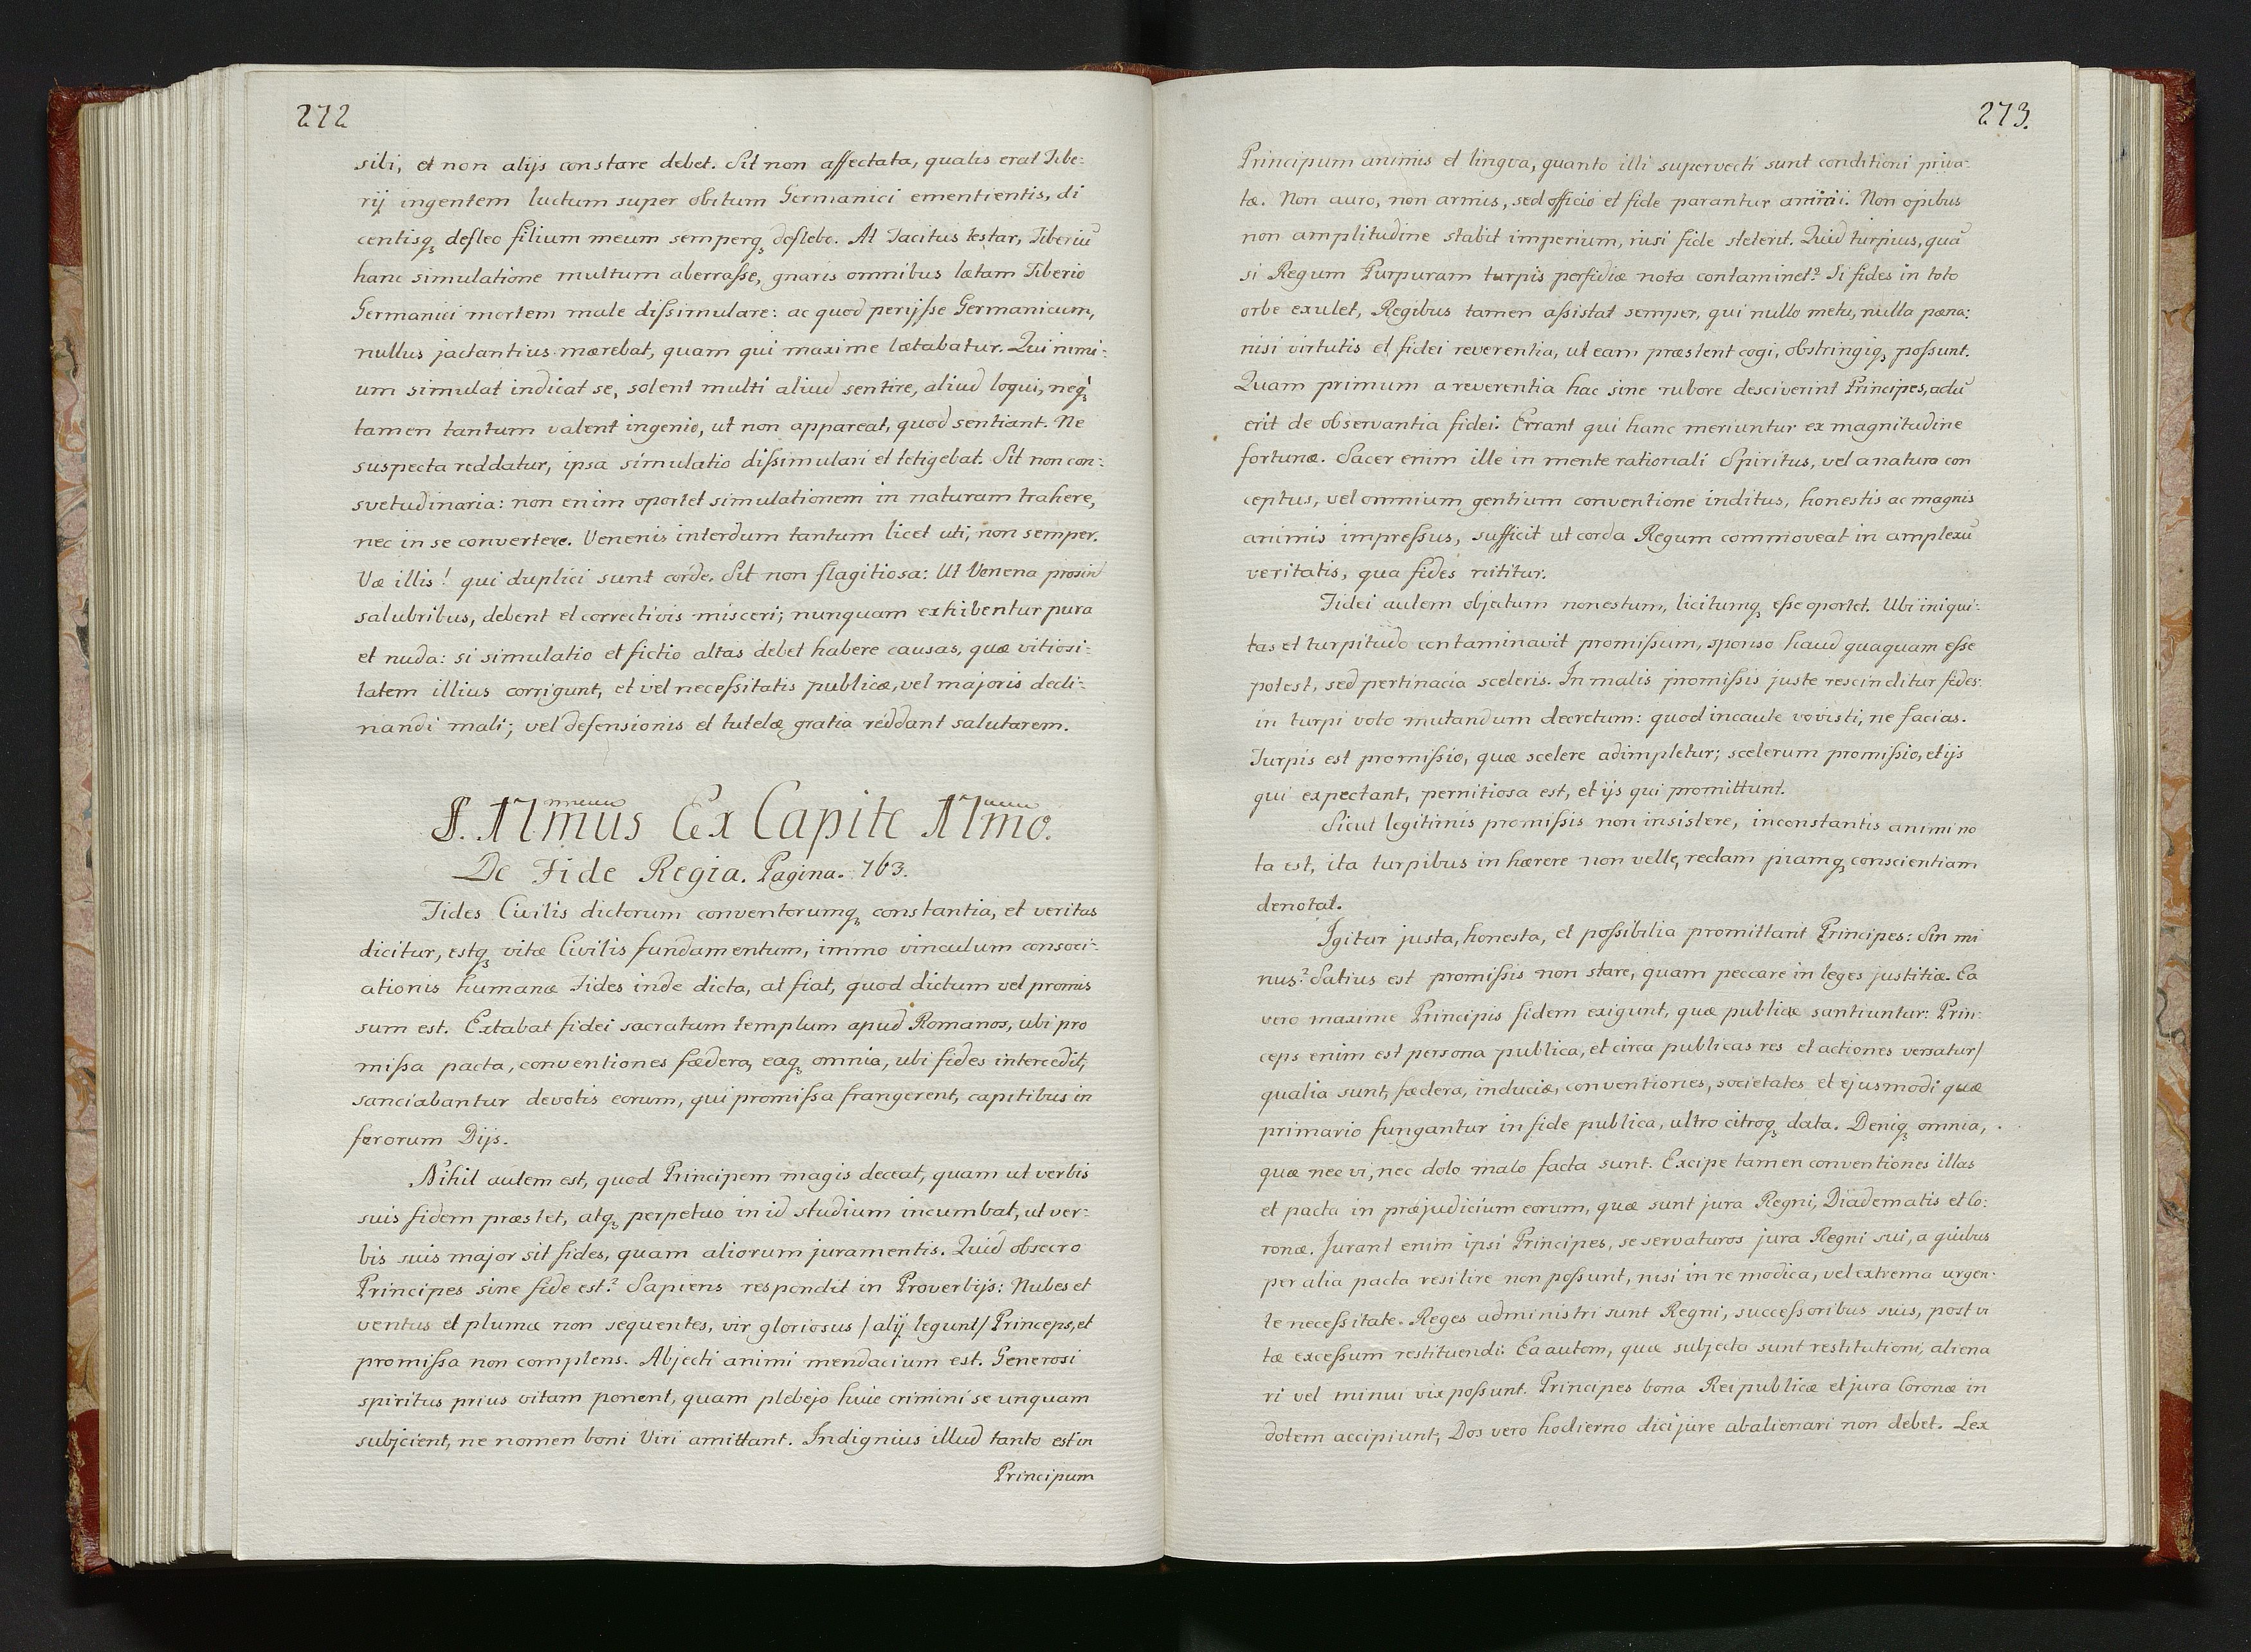 272
sibi, et non alijs constare debet. Sit non affectata, qualis erat Tibe:
rij ingentem luctum super obitum Germanici ementientis, di
centisq₃ defleo filium meum semperq₃ deflebo. At Tacitus testar, Tiberiū
hanc simulatione multum aberraſse, gnaris omnibus lætam Tiberio
Germanici mortem male diſsimulare: ac quod perijſse Germanicum,
nullus jactantius mærebat, quam qui maxime lætabatur. Qui nimi:
um simulat indicat se, solent multi aliud sentire, aliud loqui, neq₃
tamen tantum valent ingenio, ut non appareat, quod sentiant. Ne
suspecta reddatur, ipsa simulatio diſsimulari et tetigebat. Sit non con:
svetudinaria: non enim oportet simulationem in naturam trahere,
nec in se convertere. Venenis interdum tantum licet uti, non semper.
Væ illis! qui duplici sunt corde. Sit non flagitiosa: Ut Venena prosint
salubribus, debent et correctivis misceri; nunquam exhibentur pura
et nuda: si simulatio et fictio altas debet habere causas, quæ vitiosi:
tatem illius corrigunt, et vel neceſsitatis publicæ, vel majoris decli:
nandi mali; vel defensionis et tutelæ gratia reddant salutarem.
De Fide Regia. Pagina. 763.
Fides Civilis dictorum conventorumq₃ constantia, et veritas
dicitur, estq₃ vitæ Civilis fundamentum, immo vinculum consoci:
ationis humanæ Fides inde dicta, at fiat, quod dictum vel promis
sum est. Extabat fidei sacratum templum apud Romanos, ubi pro
miſsa pacta, conventiones fædera, eaq₃ omnia, ubi fides intercedit,
sanciabantur devotis eorum, qui promiſsa frangerent, capitibus in
ferorum Dijs.
Nihil autem est, quod Principem magis deceat, quam ut verbis
suis fidem præstet, atq₃ perpetuo in id studium incumbat, ut ver:
bis suis major sit fides, quam aliorum juramentis. Quid obsecro
Principes sine fide est? Sapiens respondit in Proverbijs: Nubes et
ventus et pluma non sequentes, vir gloriosus /alij legunt/ Princeps, et
promiſsa non complens. Abjecti animi mendacium est. Generosi
spiritus prius vitam ponent, quam plebejo huic crimini se unquam
subjcient, ne nomen boni Viri amittant. Indignius illud tanto est in
Principum
273.
Principum animis et lingva, quanto illi supervecti sunt conditioni priva:
tæ. Non auro, non armis, sed officio et fide parantur amici. Non opibus
non amplitudine stabit imperium, nisi fide steterit. Quid turpius, quā
si Regum Purpuram turpis perfidiæ nota contaminet? Si fides in toto
orbe exulet, Regibus tamen aſsistat semper, qui nullo metu, nulla pæna:
nisi virtutis et fidei reverentia, ut eam præstent cogi, obstringiq₃ poſsunt.
Quam primum a reverentia hac sine rubore desciverint Principes, actū
erit de observantia fidei: Errant qui hanc meriuntur ex magnitudine
fortunæ. Sacer enim ille in mente rationali Spiritus, vel a natura con
ceptus, vel omnium gentium conventione inditus, honestis ac magnis
animis impreſsus, sufficit ut corda Regum commoveat in amplexū
veritatis, qua fides nititur.
Fidei autem objectum nonestum, licitumq₃ eſse oportet. Ubi iniqui:
tas et turpitudo contaminavit promiſsum, sponso haud quaquam eſse
potest, sed pertinacia sceleris. In malis promiſsis juste rescinditur fides:
in turpi voto mutandum decretum: quod incaute vovisti, ne facias.
Turpis est promiſsio, quæ scelere adimpletur; scelerum promiſsio, et ijs
qui expectant, pernitiosa est, et ijs qui promittunt.
Sicut legitimis promiſsis non insistere, inconstantis animi no
ta est, ita turpibus in hærere non velle, rectam piamq₃ conscientiam
denotat.
Igitur justa, honesta, et poſsibilia promittant Principes: Sin mi
nus? Satius est promiſsis non stare, quam peccare in leges justitiæ. Ea
vero maxime Principis fidem exigunt, quæ publicæ santiuntur: Prin:
ceps enim est persona publica, et circa publicas res et actiones versatur/
qualia sunt, fædera, induciæ, conventiones, societates et ejusmodi quæ
primario fungantur in fide publica, ultro citroq₃ data. Deniq₃ omnia,
quæ nec vi, nec dolo malo facta sunt. Excipe tamen conventiones illas
et pacta in præjudicium eorum, quæ sunt jura Regni, Diadematis et Co:
ronæ. Jurant enim ipsi Principes, se servaturos jura Regni sui, a quibus
per alia pacta resilire non poſsunt, nisi in re modica, vel extrema urgen:
te neceſsitate. Reges administri sunt Regni, succeſsoribus suis, post vi
tæ exceſsum restituendi: Ea autem, quæ subjecta sunt restitutioni, aliena
ri vel minui vix poſsunt. Principes bona Reipublicæ et jura Coronæ in
dotem accipiunt, Dos vero hodierno dici jure abalienari non debet. Lex